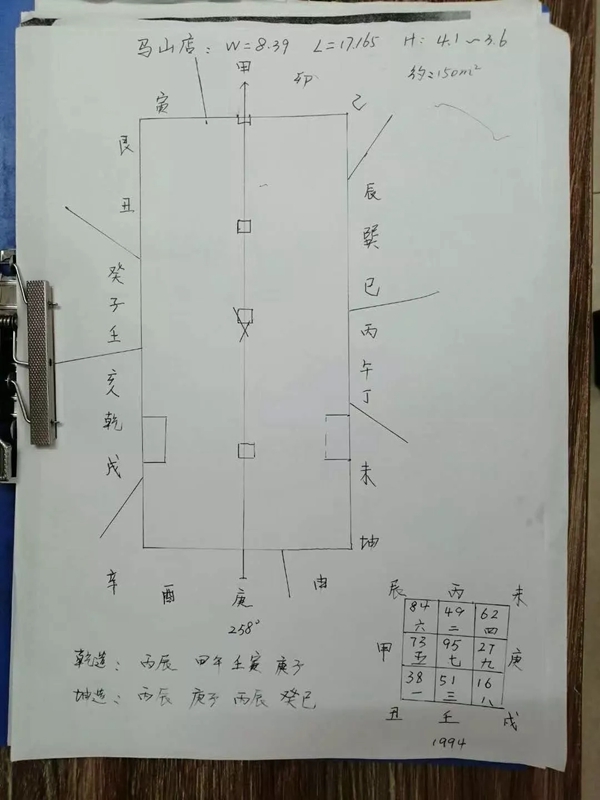 马山店: W=8.39 L=17.165 H: 4.1~3.6
约=150m²
甲
卯
寅
乙
艮
丑
癸
子
壬
亥
乾
戌
辰
巽
巳
丙
午
丁
未
坤
辛 酉 庚 申
258°
乾造: 丙辰 甲午 壬寅 庚子
坤造: 丙辰 庚子 丙辰 癸巳
辰 丙 未
84 49 62
六 二 四
甲 73 95 27 庚
五 七 九
38 51 16
一 三 八
丑 壬 戌
1994